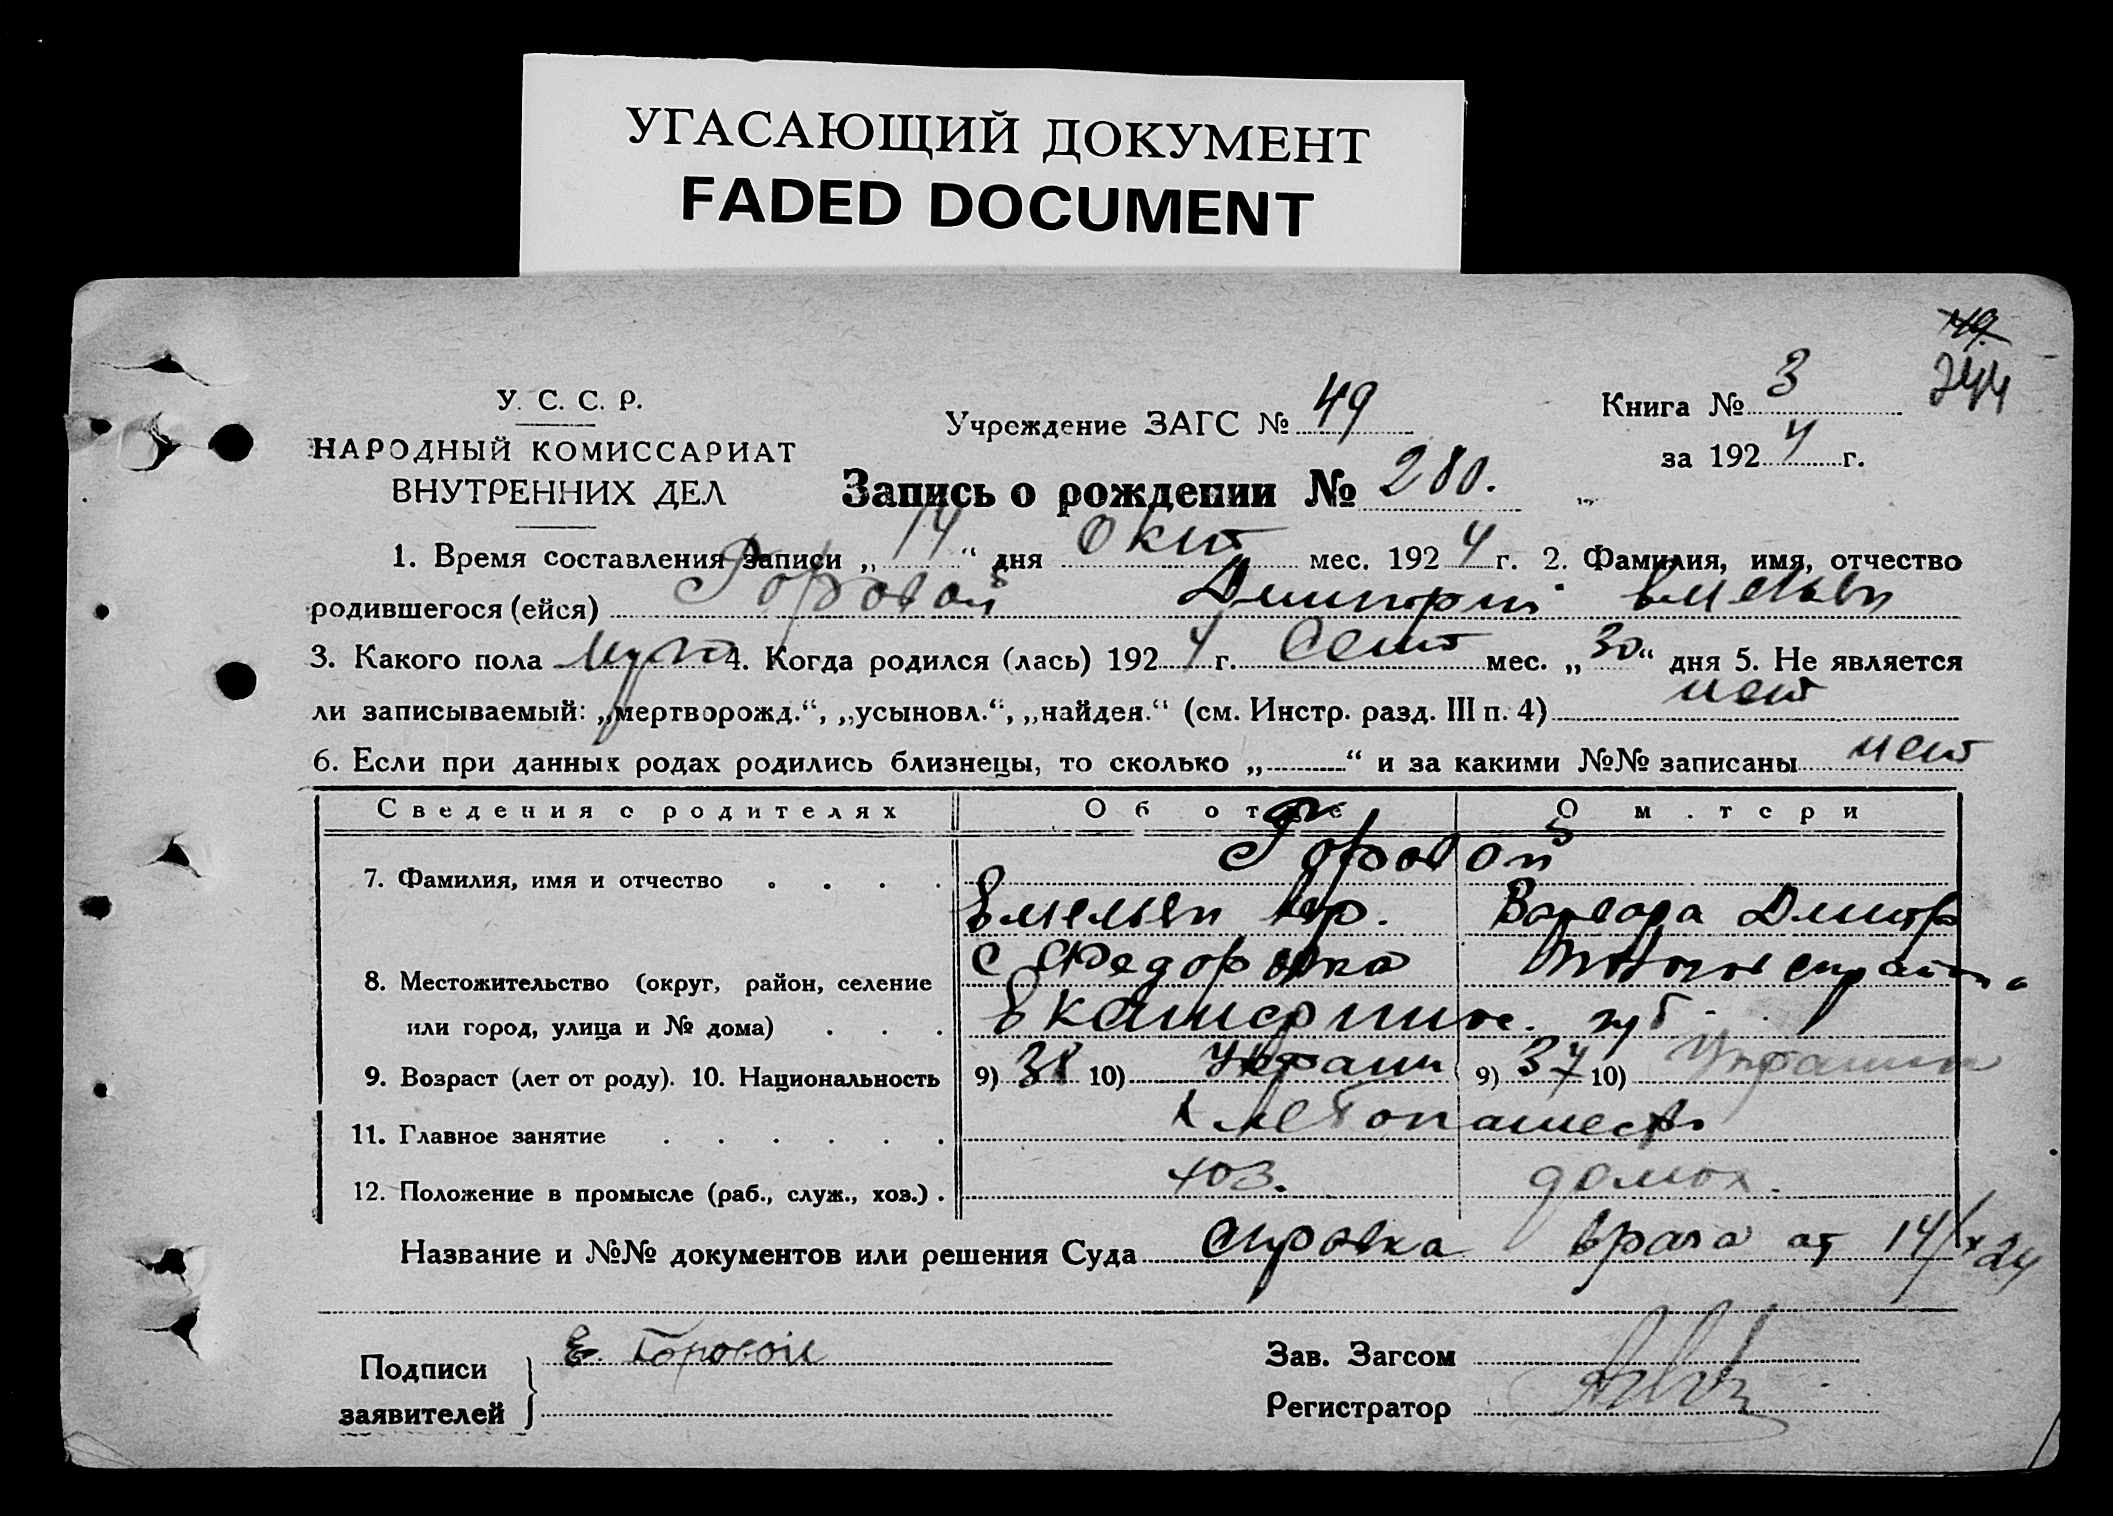 УГАСАЮЩИЙ ДОКУМЕНТ
FADED DOCUMENT
49
244
У. С. С. Р.
НАРОДНЫЙ КОМИССАРИАТ
ВНУТРЕННИХ ДЕЛ
Учреждение ЗАГС № 49
Книга № 3
за 1924 г.
Запись о рождении № 280.
1. Время составления записи „14“ дня Окт мес. 1924 г. 2. Фамилия, имя, отчество
родившегося (ейся) Горовой Дмитрий Емельян
3. Какого пола Муж 4. Когда родился (лась) 1924 г. Сент мес. „30“ дня 5. Не является
ли записываемый: „мертворожд.“, „усыновл.“, „найден.“ (см. Инстр. разд. III п. 4) нет
6. Если при данных родах родились близнецы, то сколько „ “ и за какими №№ записаны нет
Сведения о родителях Об отце О матери
Горовой
7. Фамилия, имя и отчество . . . .
Емельян Гр. Варвара Дмитр
с Федоровка
8. Местожительство (округ, район, селение
или город, улица и № дома) . . . Екатеринос. губ.
9. Возраст (лет от роду). 10. Национальность 9) 38 10) Украин 9) 37 10) Украин
11. Главное занятие . . . . . . Хлебопашеств
12. Положение в промысле (раб., служ., хоз.) . хоз. домох.
Название и №№ документов или решения Суда справка врача от 14/X 24
Подписи
заявителей
Е. Горовой
Зав. Загсом
Регистратор